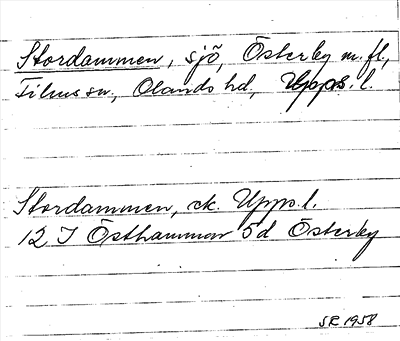 Stordammen, sjö, Österby m.fl,
Films sn., Olands hd, Upps. l.
Stordammen, ek. Upps.l.
12 I Östhammar 5d Österby
SR 1958